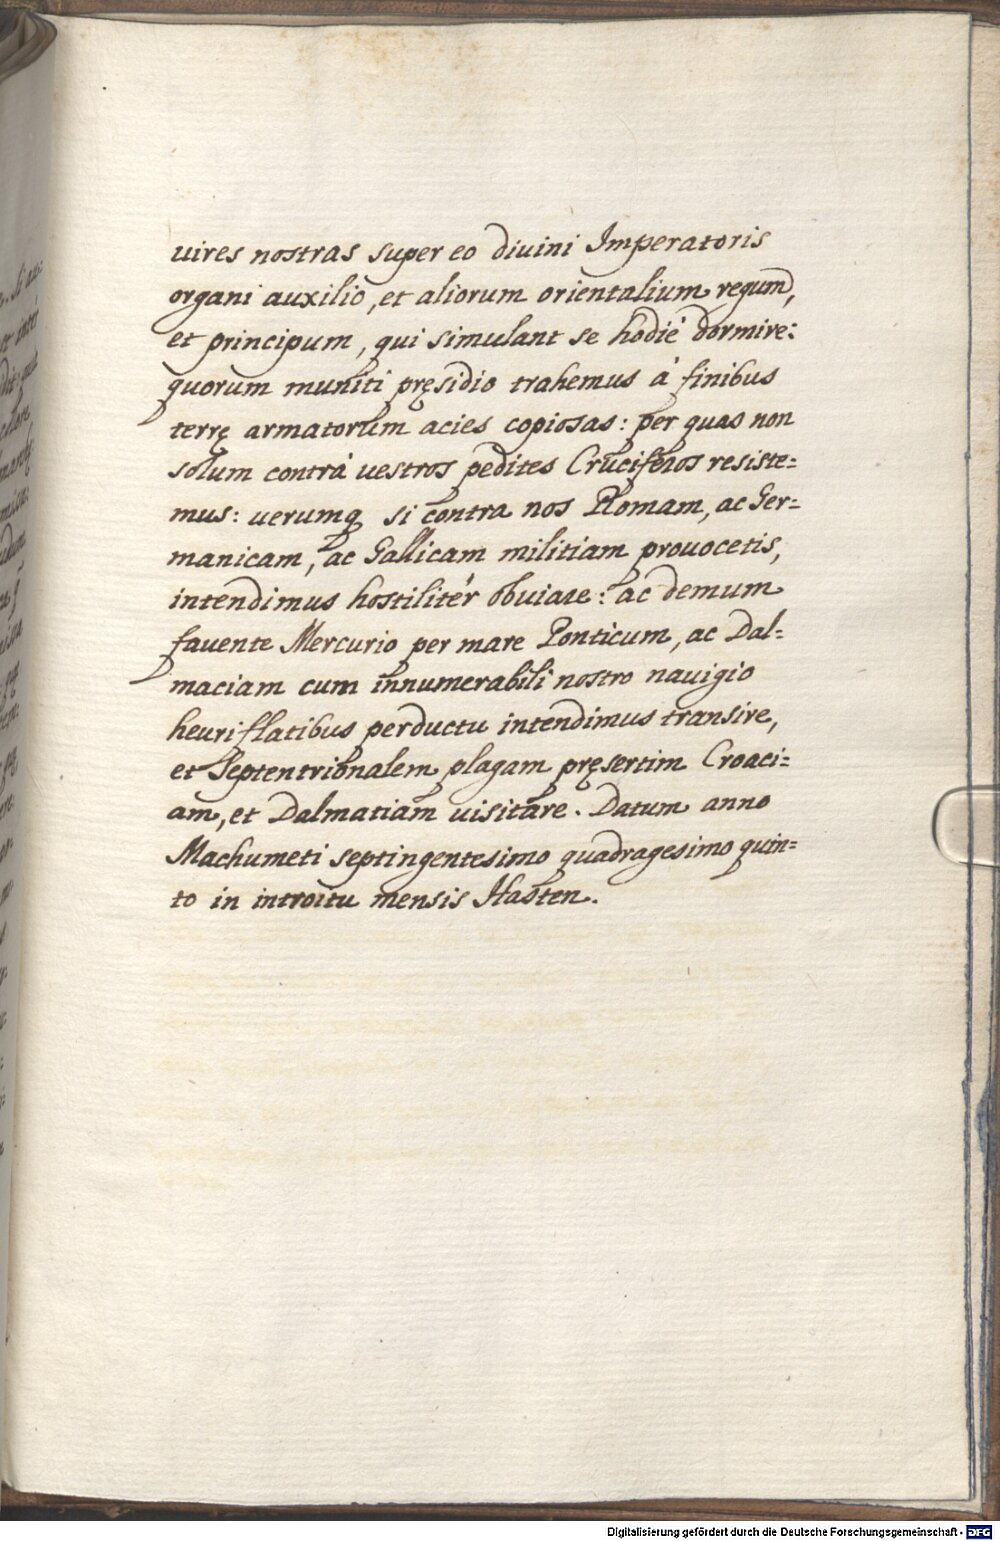 uires nostras super eo diuini Imperatoris
organi auxilio, et aliorum orientalium regum,
et principum, qui simulant se hodiè dormire:
quorum muniti pręsidio trahemus à finibus
terrę armatorum acies copiosas: per quas non
solum contrà uestros pedites Cruciferos resiste=
mus: uerumq si contra nos Romam, ac Ger=
manicam, ac Gallicam militiam prouocetis,
intendimus hostilitér obuiare: ac demum
fauente Mercurio per mare Ponticum, ac Dal=
maciam cum innumerabili nostro nauigio
heuriflatibus perductu intendimus transire,
et Septentrionalem plagam pręsertim Croaci=
am, et Dalmatiam uisitare. Datum anno
Machumeti septingentesimo quadragesimo quin=
to in introitu mensis Hasten.
Digitalisierung gefördert durch die Deutsche Forschungsgemeinschaft - DFG